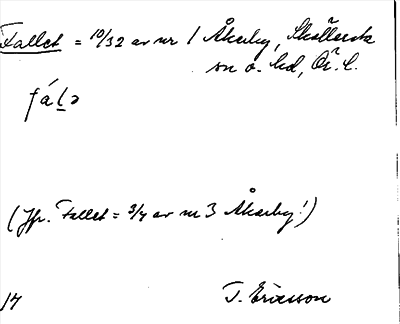 Fallet = 10/32 av nr 1 Åkerby, Sköllersta
sn o. hd, Ör. l.
fálə
(Jfr. Fallet = 3/4 av nr 3 Åkerby!)
T. Ericsson